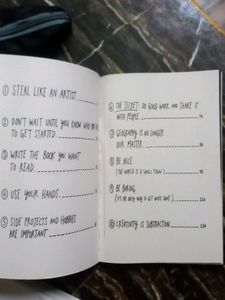 ① STEAL LIKE AN ARTIST
② DON'T WAIT UNTIL YOU KNOW WHO YOU
TO GET STARTED.
③ WRITE THE BOOK YOU WANT
TO READ.
④ USE YOUR HANDS.
⑤ SIDE PROJECTS AND HOBBIES
ARE IMPORTANT
⑥ THE SECRET: DO GOOD WORK AND SHARE IT
WITH PEOPLE.
⑦ GEOGRAPHY IS NO LONGER
OUR MASTER.
⑧ BE NICE.
(THE WORLD IS A SMALL TOWN.)
⑨ BE BORING.
(IT'S THE ONLY WAY TO GET WORK DONE.)
⑩ CREATIVITY IS SUBTRACTION.